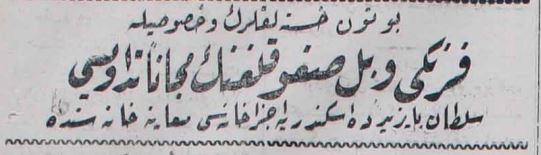 بوتون خسته لقلرك و خصوصيله
فرنكى و بل صغوقلغنك مجاناً تداويسى
سلطان بايزيدده اسكندريه اجزاخانه سى معاينه خانه سنده